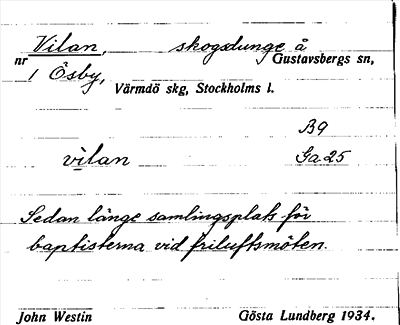 Vilan, skogsdunge å
nr Gustavsbergs sn,
1 Ösby,
Värmdö skg, Stockholms l.
B9
vilan Ga25
Sedan länge samlingsplats för
baptisterna vid friluftsmöten.
John Westin Gösta Lundberg 1934.